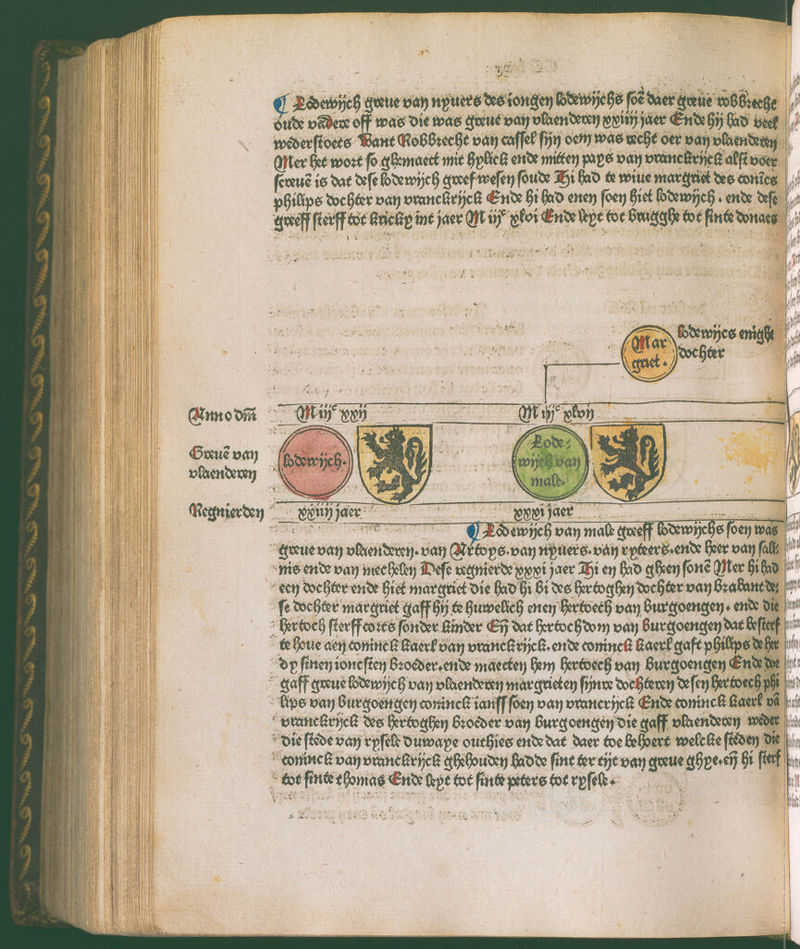 ¶ Lodewijch greue van nyuers des iongen lodewijchs soē daer greue robbrecht
oude vadere off was die was greue van vlaenderen xxiiij jaer Ende hij had veel
wederstoets Want Robbrecht van cassel sijn oem was recht oer van vlaenderen
Mer het wort so ghemaect mit hylick ende mitten pays van vranckrijck alst voer
screuē is dat dese lodewijch greef wesen soude Hi had te wiue margriet des conīcs
philips dochter van vranckrijck Ende hi had enen soen hiet lodewijch . ende dese
greeff sterff tot krickyͤ int jaer M iijᶜ xlvi Ende leyt tot brugghe tot sinte donaes
Mar
griet .
lodewijcs enighe
dochter
Anno dm̄
M iijᶜ xxij
M iijᶜ xlvij
Greuē van
vlaenderen
lodewijch.
Lode:
wijch van
male.
Regnierden
xxiiij jaer
xxxi jaer
¶ Lodewijch van male greeff lodewijchs soen was
greue van vlaenderen. van Artoys. van nyuers. van ryteers. ende heer van sali:
nis ende van mechelen Dese regnierde xxxi jaer Hi en had gheen sonē Mer hi had
een dochter ende hiet margriet die had hi bi des hertoghen dochter van brabant de:
se dochter margriet gaff hij te huwelich enen hertoech van burgoengen. ende die
hertoch sterff corts sonder kinder Eñ dat hertochdom van burgoengen dat besterf
te houe aen coninck kaerl van vranckrijck. ende coninck kaerl gaft philips de her
dy sinen ioncsten broeder. ende maecten hem hertoech van burgoengen Ende doe
gaff greue lodewijch van vlaenderen margrieten sijnre dochteren desen hertoech phi
lips van burgoengen coninck ianss soen van vrancrijck Ende coninck kaerl vā
vranckrijck des hertoghen broeder van burgoengen die gaff vlaenderen weder
die stede van rysele duwaye outhies ende dat daer toe behoert welcke steden die
coninck van vranckrijck ghehouden hadde sint ter tijt van greue ghye. eñ hi sterf
tot sinte thomas Ende leyt tot sinte peters tot rysele.